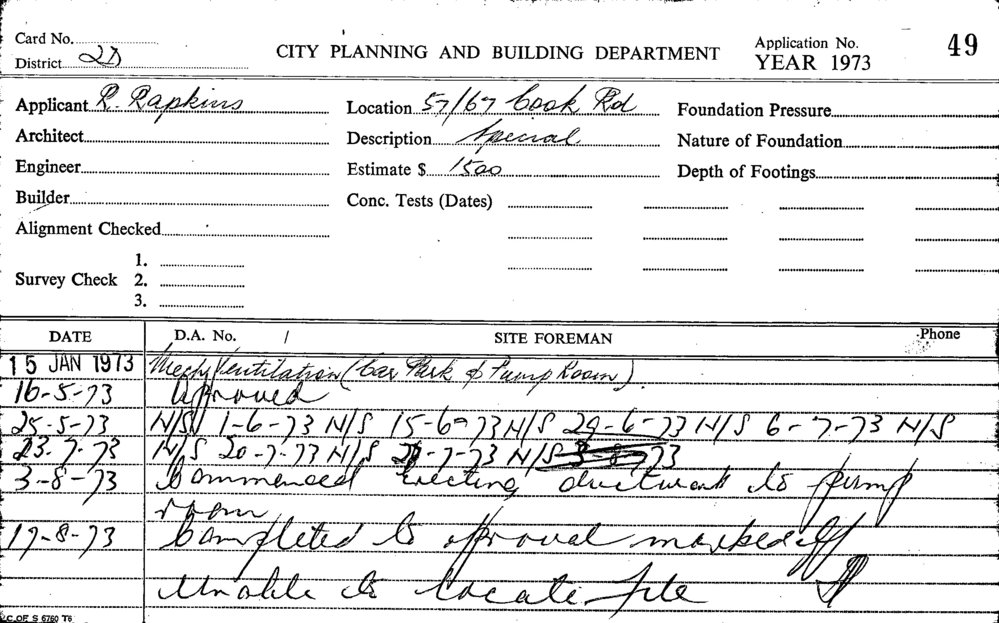 Card No.
CITY PLANNING AND BUILDING DEPARTMENT
Application No. 49
District 2D
YEAR 1973
Applicant R. Rapkins Location 57/67 Cook Rd Foundation Pressure
Architect Description Special Nature of Foundation
Engineer Estimate $ 1500 Depth of Footings
Builder Conc. Tests (Dates)
Alignment Checked
1.
Survey Check 2.
3.
DATE D.A. No. / SITE FOREMAN Phone
15 JAN 1973 Mech. Ventilation (Car Park & Pump Room).
16-5-73 approved
25-5-73 N/S 1-6-73 N/S 15-6-73 N/S 29-6-73 N/S 6-7-73 N/S
13-7-73 N/S 20-7-73 N/S 27-7-73 N/S 3-8-73
3-8-73 Commenced erecting ductwork to pump
room
17-8-73 Completed to approval marked off
Unable to locate file
C. OF S 6760 T6